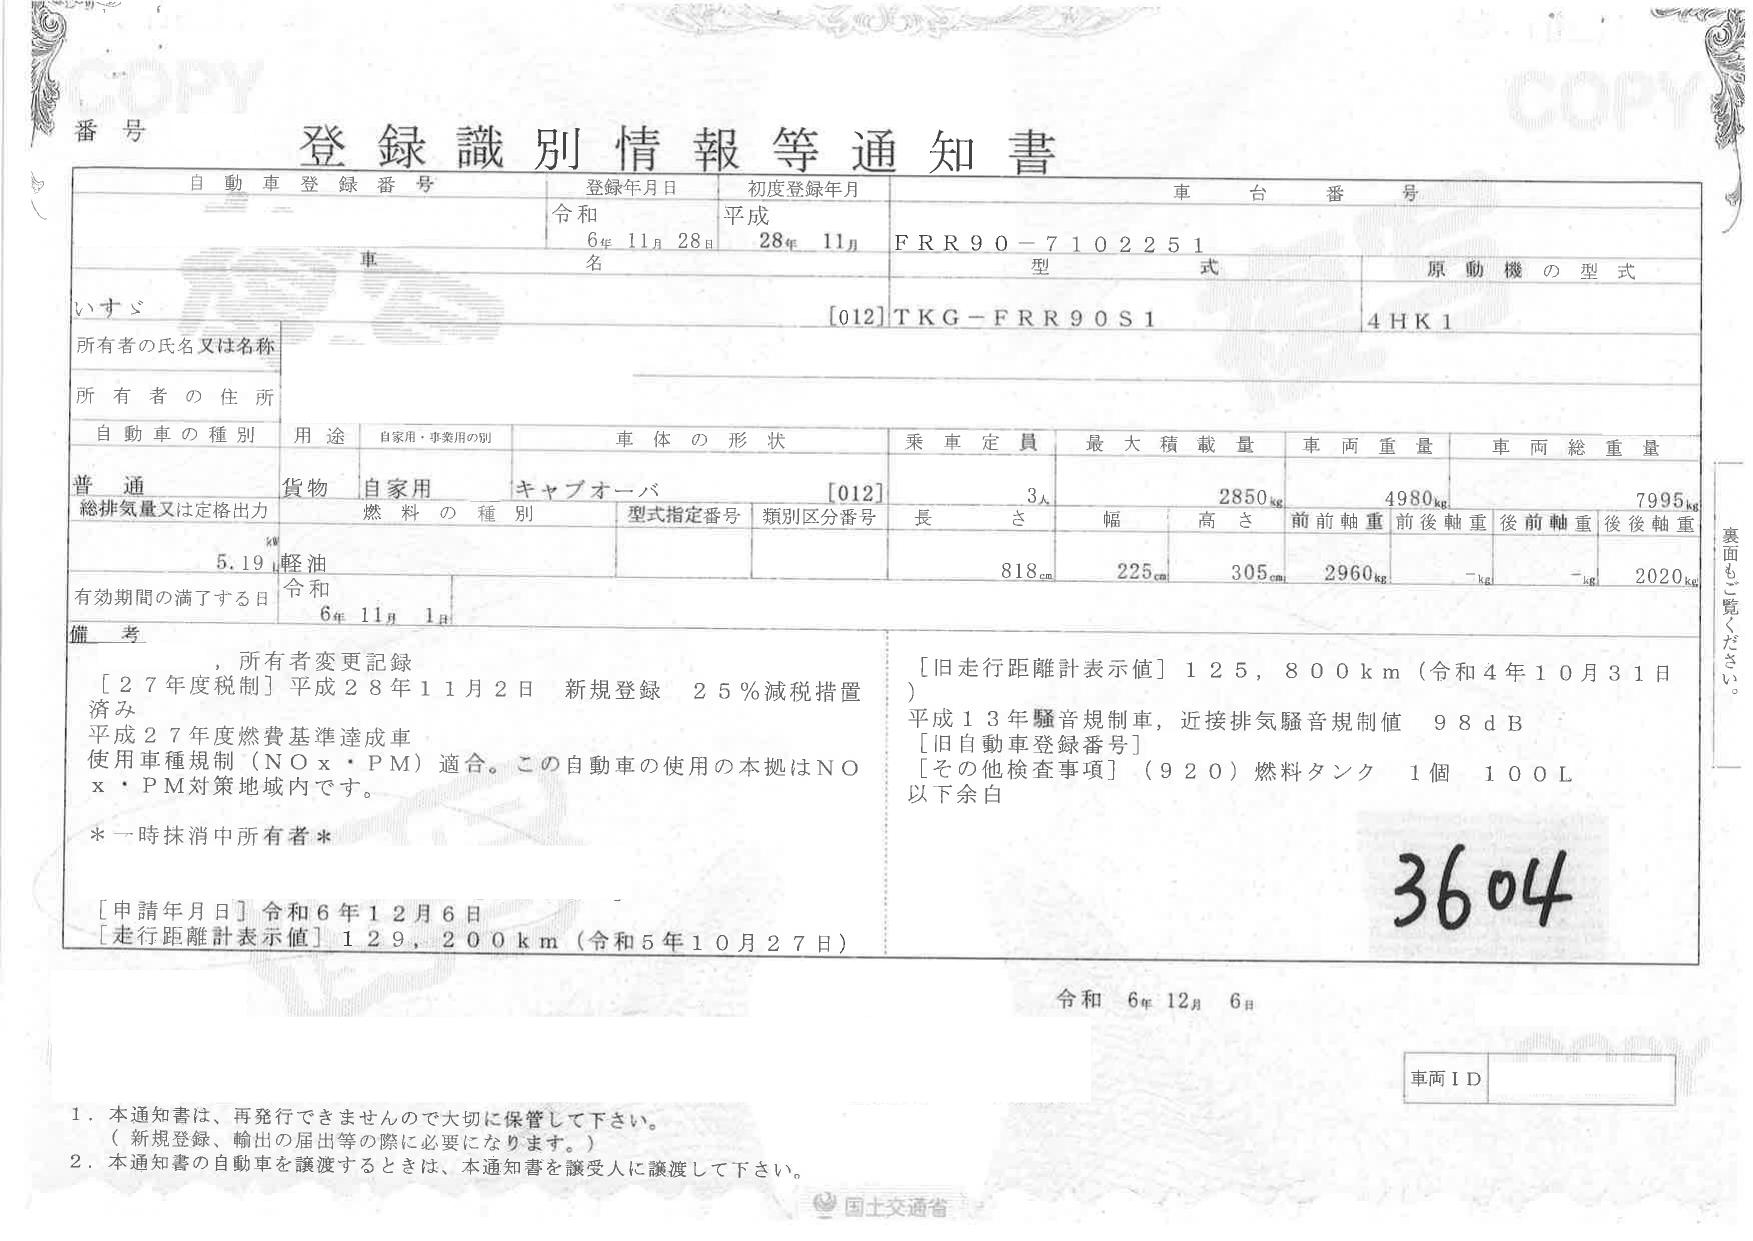 COPY
COPY
番号
登録識別情報等通知書
自動車登録番号 登録年月日 初度登録年月 車台番号
令和 平成
6年 11月 28日 28年 11月 FRR90-7102251
車名 型式 原動機の型式
いすゞ [012] TKG-FRR90S1 4HK1
所有者の氏名又は名称
所有者の住所
自動車の種別 用途 自家用・事業用の別 車体の形状 乗車定員 最大積載量 車両重量 車両総重量
普通 貨物 自家用 キャブオーバ [012] 3人 2850kg 4980kg 7995kg
総排気量又は定格出力 燃料の種別 型式指定番号 類別区分番号 長さ 幅 高さ 前前軸重 前後軸重 後前軸重 後後軸重
kW
5.19 L 軽油 818cm 225cm 305cm 2960kg -kg -kg 2020kg
有効期間の満了する日 令和
6年 11月 1日
備考
,所有者変更記録
[27年度税制]平成28年11月2日 新規登録 25%減税措置
済み
平成27年度燃費基準達成車
使用車種規制(NOx・PM)適合。この自動車の使用の本拠はNO
x・PM対策地域内です。
*一時抹消中所有者*
[申請年月日]令和6年12月6日
[走行距離計表示値]129,200km(令和5年10月27日)
[旧走行距離計表示値]125,800km(令和4年10月31日
)
平成13年騒音規制車,近接排気騒音規制値 98dB
[旧自動車登録番号]
[その他検査事項](920)燃料タンク 1個 100L
以下余白
3604
裏面もご覧ください。
令和 6年 12月 6日
COPY
車両ID
1.本通知書は、再発行できませんので大切に保管して下さい。
(新規登録、輸出の届出等の際に必要になります。)
2.本通知書の自動車を譲渡するときは、本通知書を譲受人に譲渡して下さい。
国土交通省